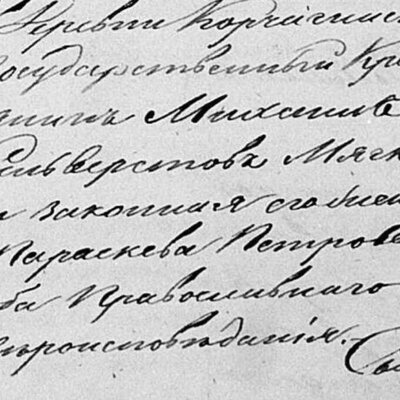 Деревни Корчагинс
Государственный Кре
янинъ Михаилъ
Сельверстовъ Мягк
и законная его жен
Параскева Петров
ба Православнаго
вѣроисповѣданія. –